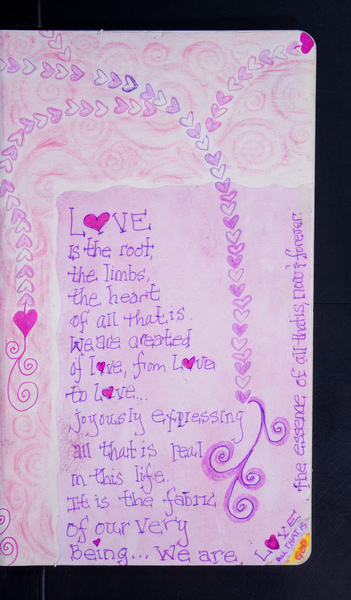 LOVE
is the root,
the limbs,
the heart
of all that is.
We are created
of love, from Love
to love...
joyously expressing
all that is real
in this life.
It is the fabric
of our very
Being... We are
LOVE
ALL THAT IS
GOD
the essence of all that is, now & forever.